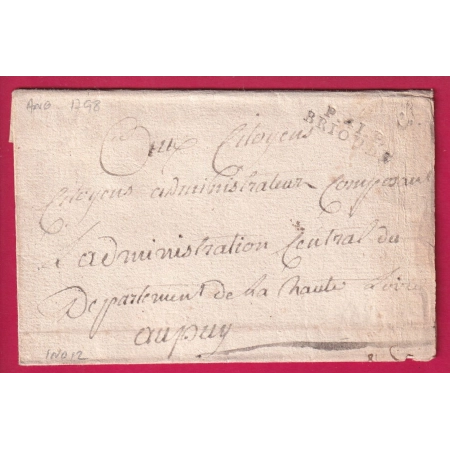 Aoug 1798
P.41.P.
BRIOUDE
Aux Citoyens
Citoyens administrateur Composant
L'administration Central du
Departement de La haute Loire
au puy
IND 12